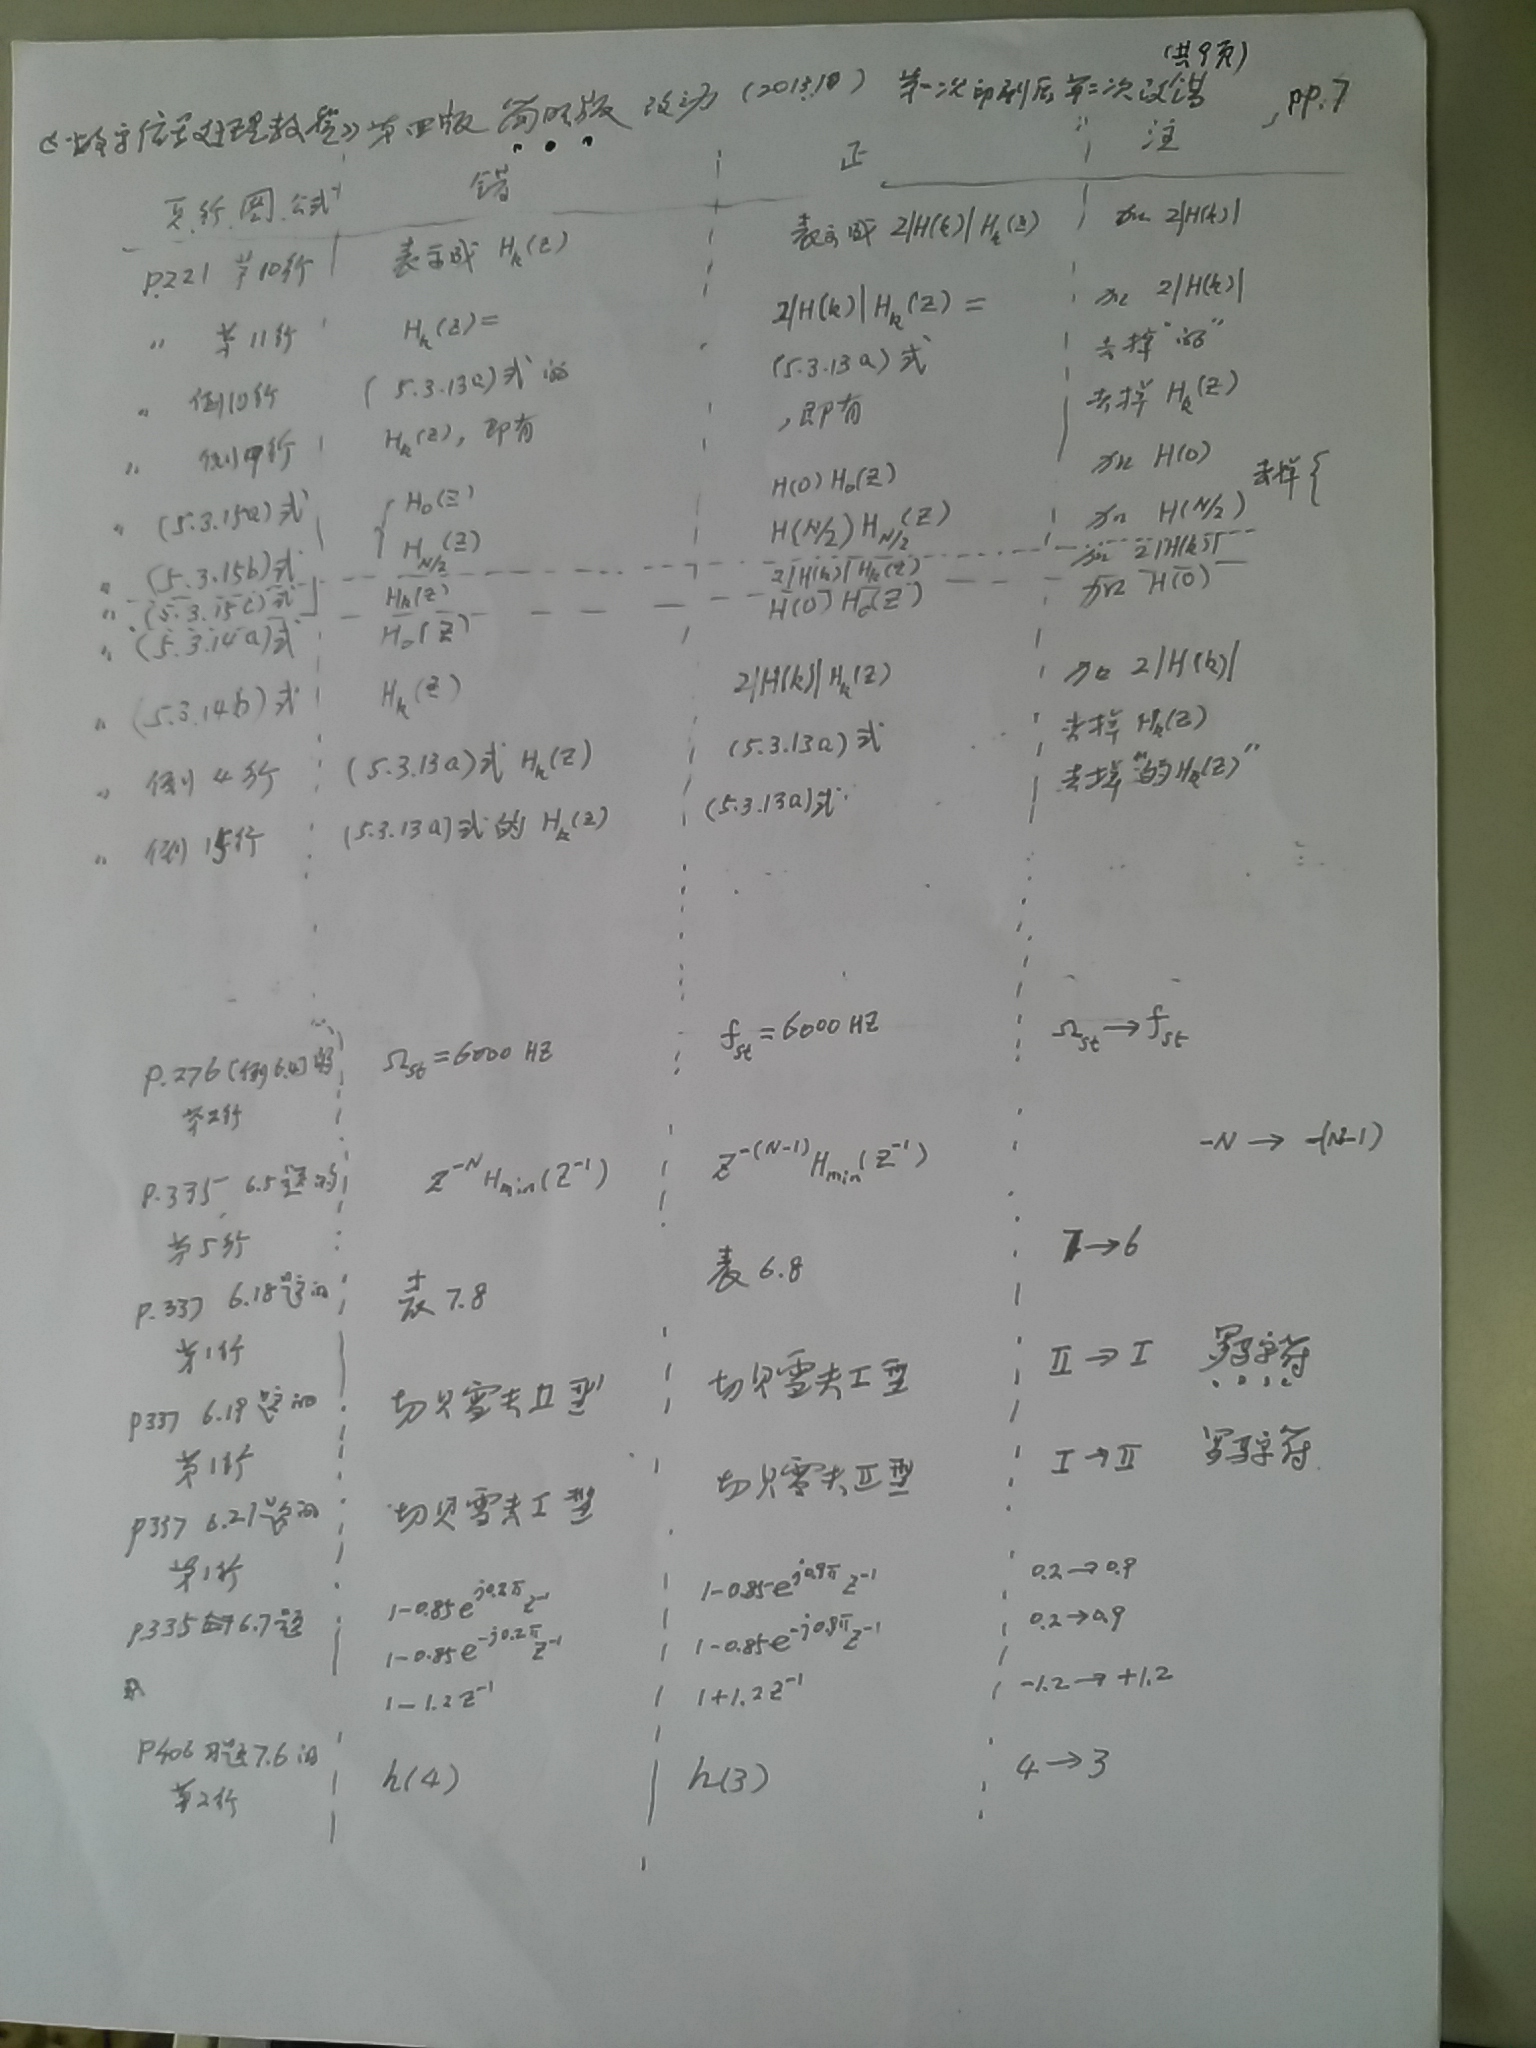 (共9页)
《数字信号处理教程》第四版 简明版 改动 (2013.10) 第一次印刷后第二次改错, pp.7
页.行.图.公式 错 正 注
P.221 第10行 表示成 Hk(Z) 表示成 2|H(k)|Hk(Z) 加 2|H(k)|
" 第11行 Hk(Z)= 2|H(k)|Hk(Z)= 加 2|H(k)|
" 倒10行 (5.3.13a)式的 (5.3.13a)式 去掉"的"
" 倒9行 Hk(Z), 即有 , 即有 去掉 Hk(Z)
" (5.3.15a)式 { H0(Z) H(0)H0(Z) 加 H(0) 去掉{
" (5.3.15b)式 HN/2(Z) H(N/2)HN/2(Z) 加 H(N/2)
" (5.3.15c)式 Hk(Z) 2|H(k)|Hk(Z) 加 2|H(k)|
" (5.3.14a)式 H0(Z) H(0)H0(Z) 加 H(0)
" (5.3.14b)式 Hk(Z) 2|H(k)|Hk(Z) 加 2|H(k)|
" 倒4行 (5.3.13a)式 Hk(Z) (5.3.13a)式 去掉 Hk(Z)
" 倒15行 (5.3.13a)式的 Hk(Z) (5.3.13a)式 去掉"的Hk(Z)"
P.276 [例6.4]的 Ωst=6000HZ fst=6000HZ Ωst→fst
第2行
P.335 6.5题的 Z^-N Hmin(Z^-1) Z^-(N-1) Hmin(Z^-1) -N → -(N-1)
第5行
P.337 6.18题的 表7.8 表6.8 7→6
第1行
P337 6.19题的 切贝雪夫II型 切贝雪夫I型 II→I 罗马字符
第1行
P337 6.21题的 切贝雪夫I型 切贝雪夫II型 I→II 罗马字符
第1行
P335 6.7题 1-0.85e^j0.2π Z^-1 1-0.85e^j0.9π Z^-1 0.2→0.9
1-0.85e^-j0.2π Z^-1 1-0.85e^-j0.9π Z^-1 0.2→0.9
1-1.2Z^-1 1+1.2Z^-1 -1.2→+1.2
P406 习题7.6的 h(4) h(3) 4→3
第2行